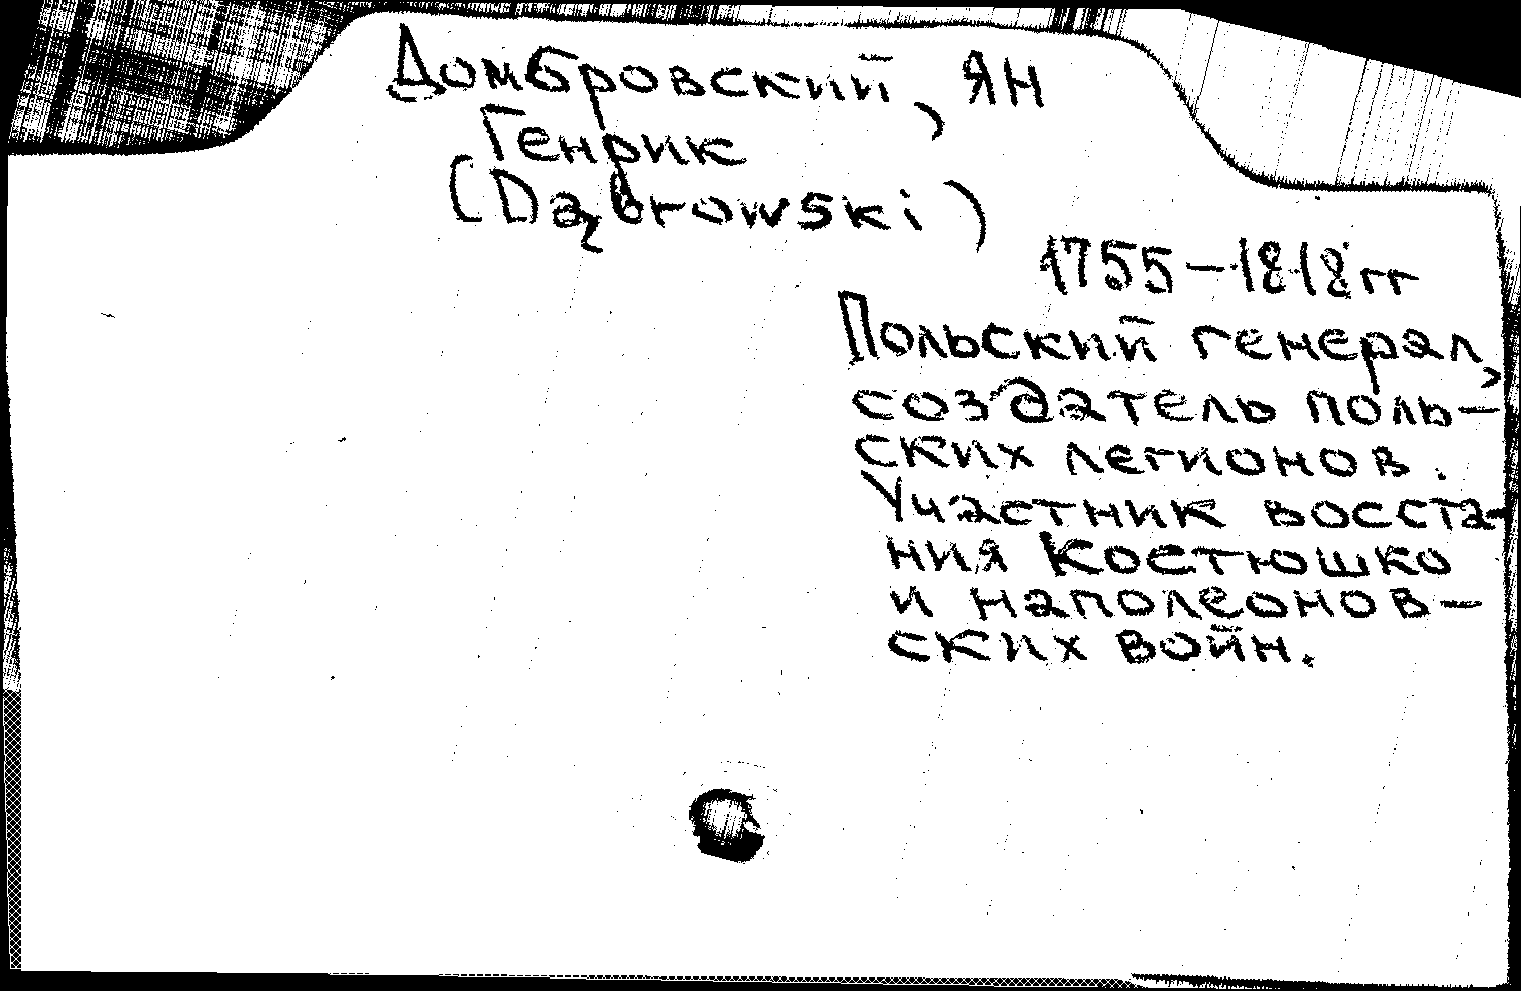 Домбровский, Ян
Генрик
(Dąbrowski)
1755-1818гг
Польский генерал,
создатель поль-
ских легионов.
Участник восста-
ния Костюшко
и наполеонов-
ских войн.